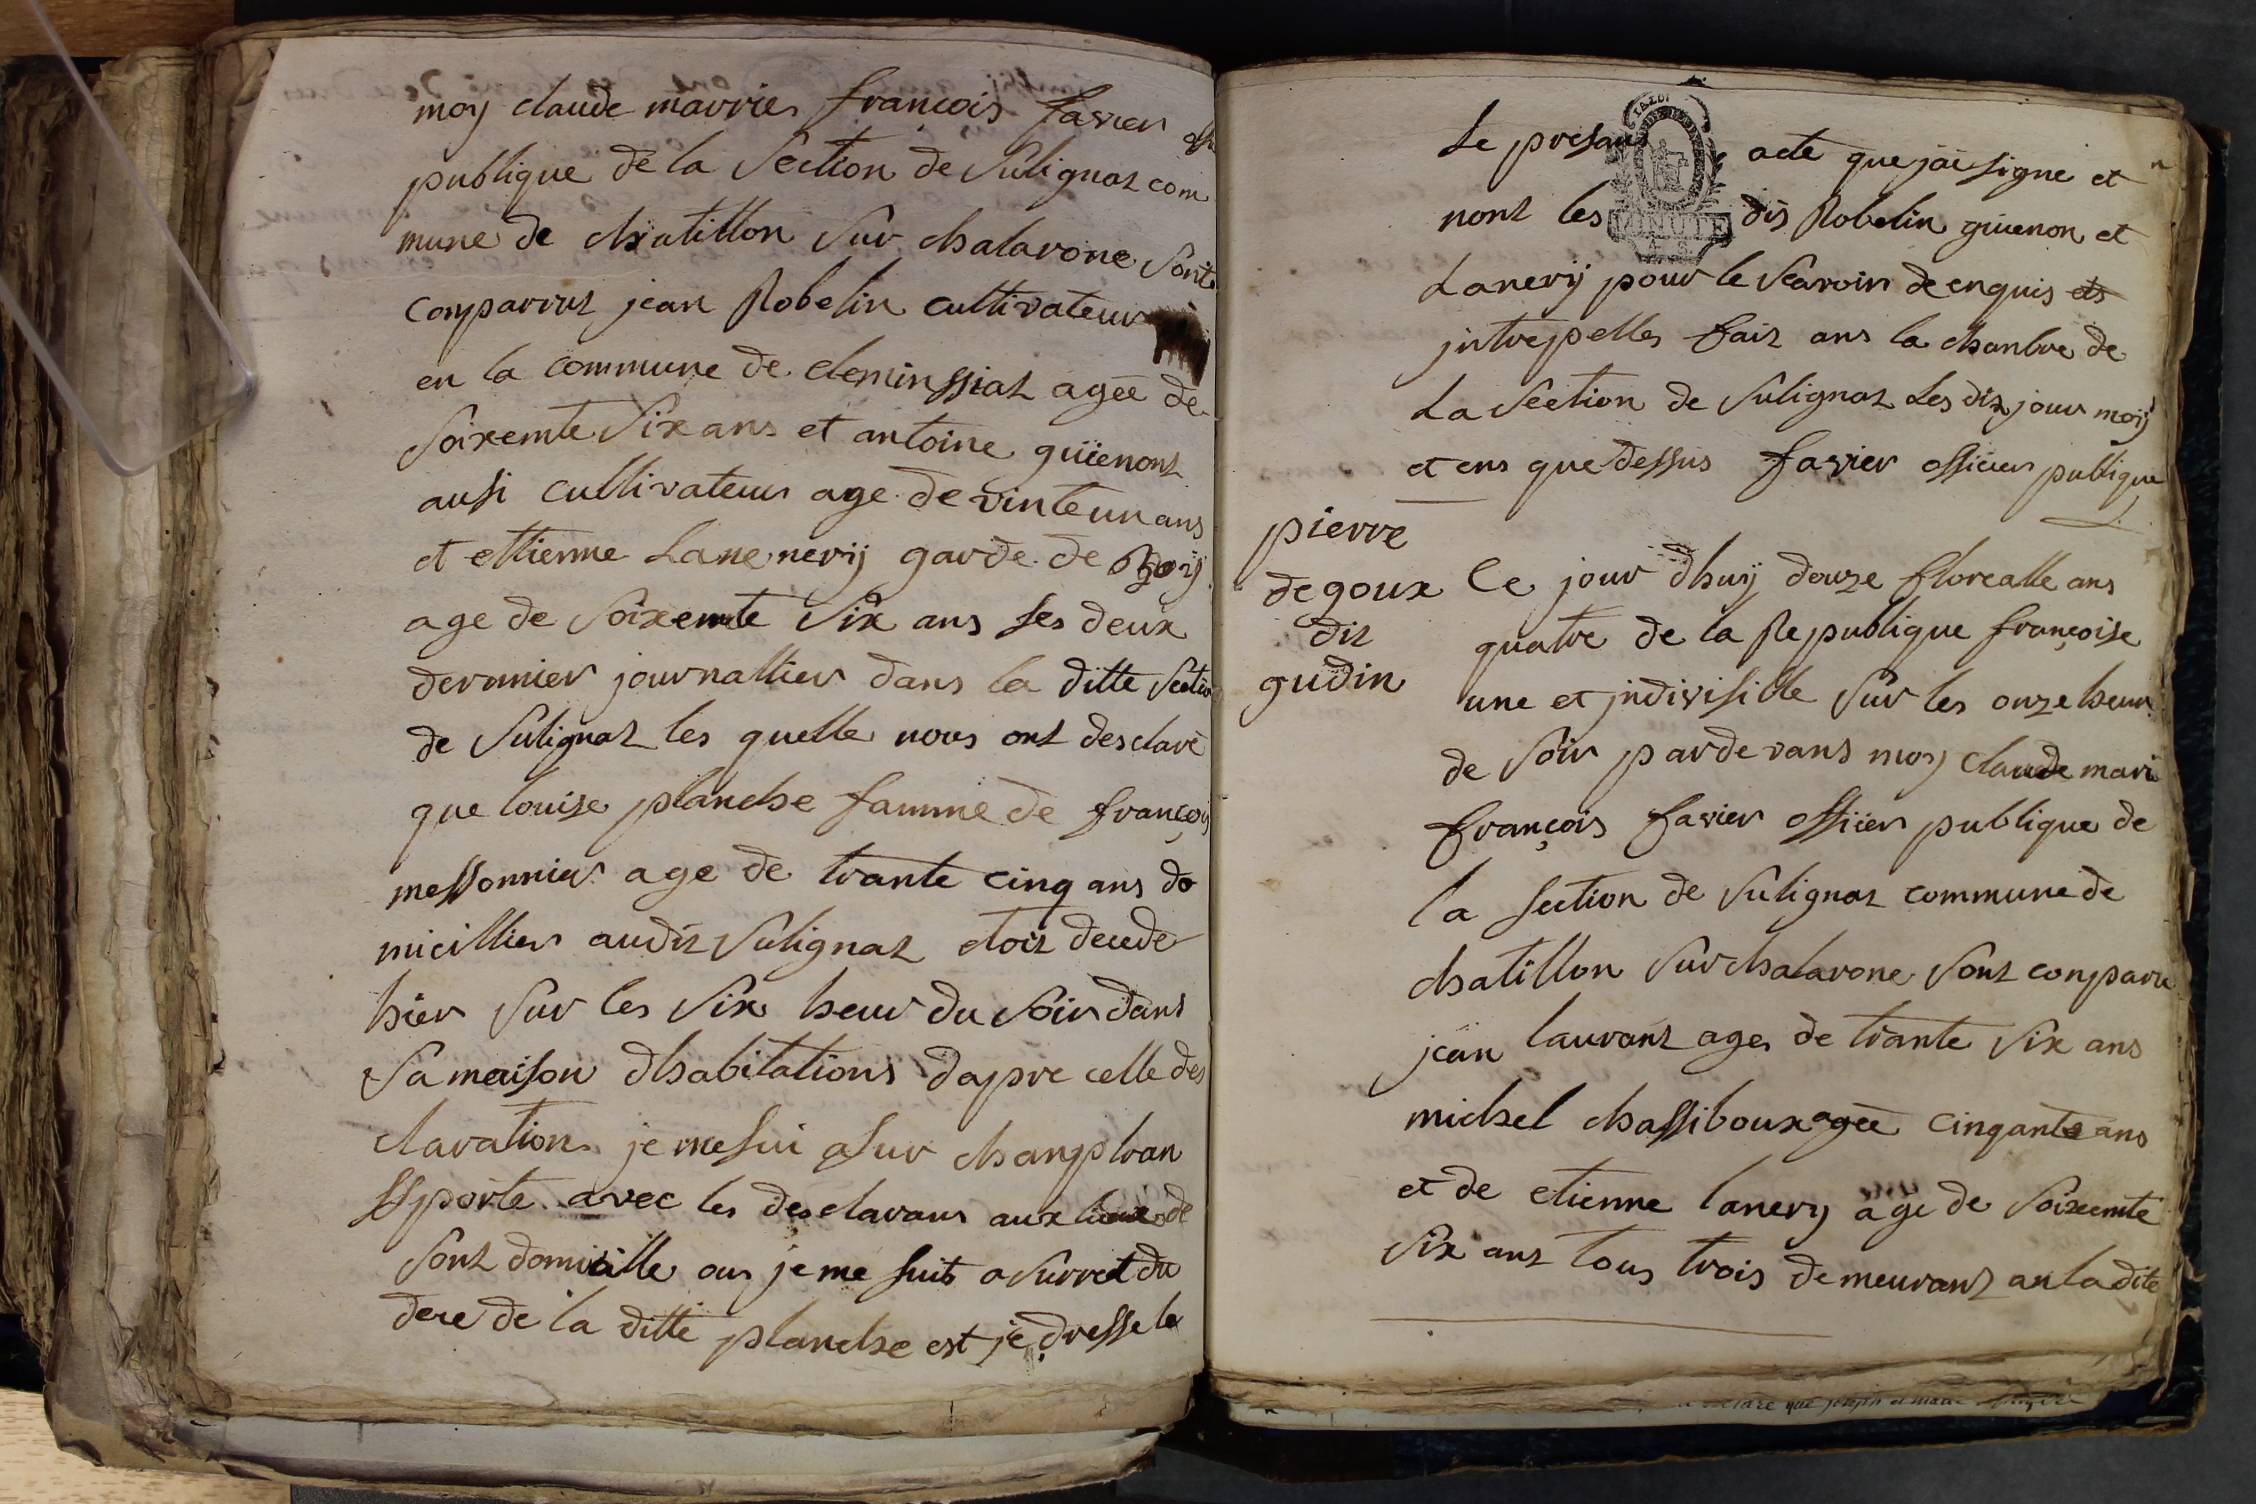 moy claude marrier françois favier offi
publique de la Section de Sulignat com
mune de chatillon Sur chalarone Sont
comparrut jean Robelin cultivateur
en la commune de cleminssiat agée de
Soixemte Six ans et antoine guienont
ausi cultivateur age de vinte un ans
et ettienne Lanenerij garde de
age de Soixemte Six ans les deux
dernnier journallier dans la ditte Section
de Sulignat les quelle nous ont desclaré
que louise planche famme de françois
messonnier age de trante cinq ans do
micillier audit Sulignat etoit decede
hier Sur les Six heur du Soir dans
Sa meison dhabitations dapre celle des
claration je me sui a Sur champ tran
ssporte avec les desclarans aux lieux de
Sont domicille ous je me suits asurret du
dece de la ditte planche est je dresse le
Le presant acte que jai signe et
nont les dis Robelin guienon et
Lanerij pour le Scavoir de enquis et
jntrepelles fait ans la chanbre de
La Section de Sulignat Les dit jour moij
et ens que dessus favier officier publique
pierre
degoux
dit
gudin
Ce jour dhuij douze florealle ans
quatre de la Republique françoise
une et jndivisible Sur les onze heur
de Soir pardevans moy claude mari
françois favier officier publique de
la Section de Sulignat commune de
chatillon Sur chalarone Sont comparu
jean laurant ages de trante Six ans
michel chassiboux agée cinqante ans
et de etienne lanery age de Soixemte
Six ans tous trois demeurant an la dite
MINUTE